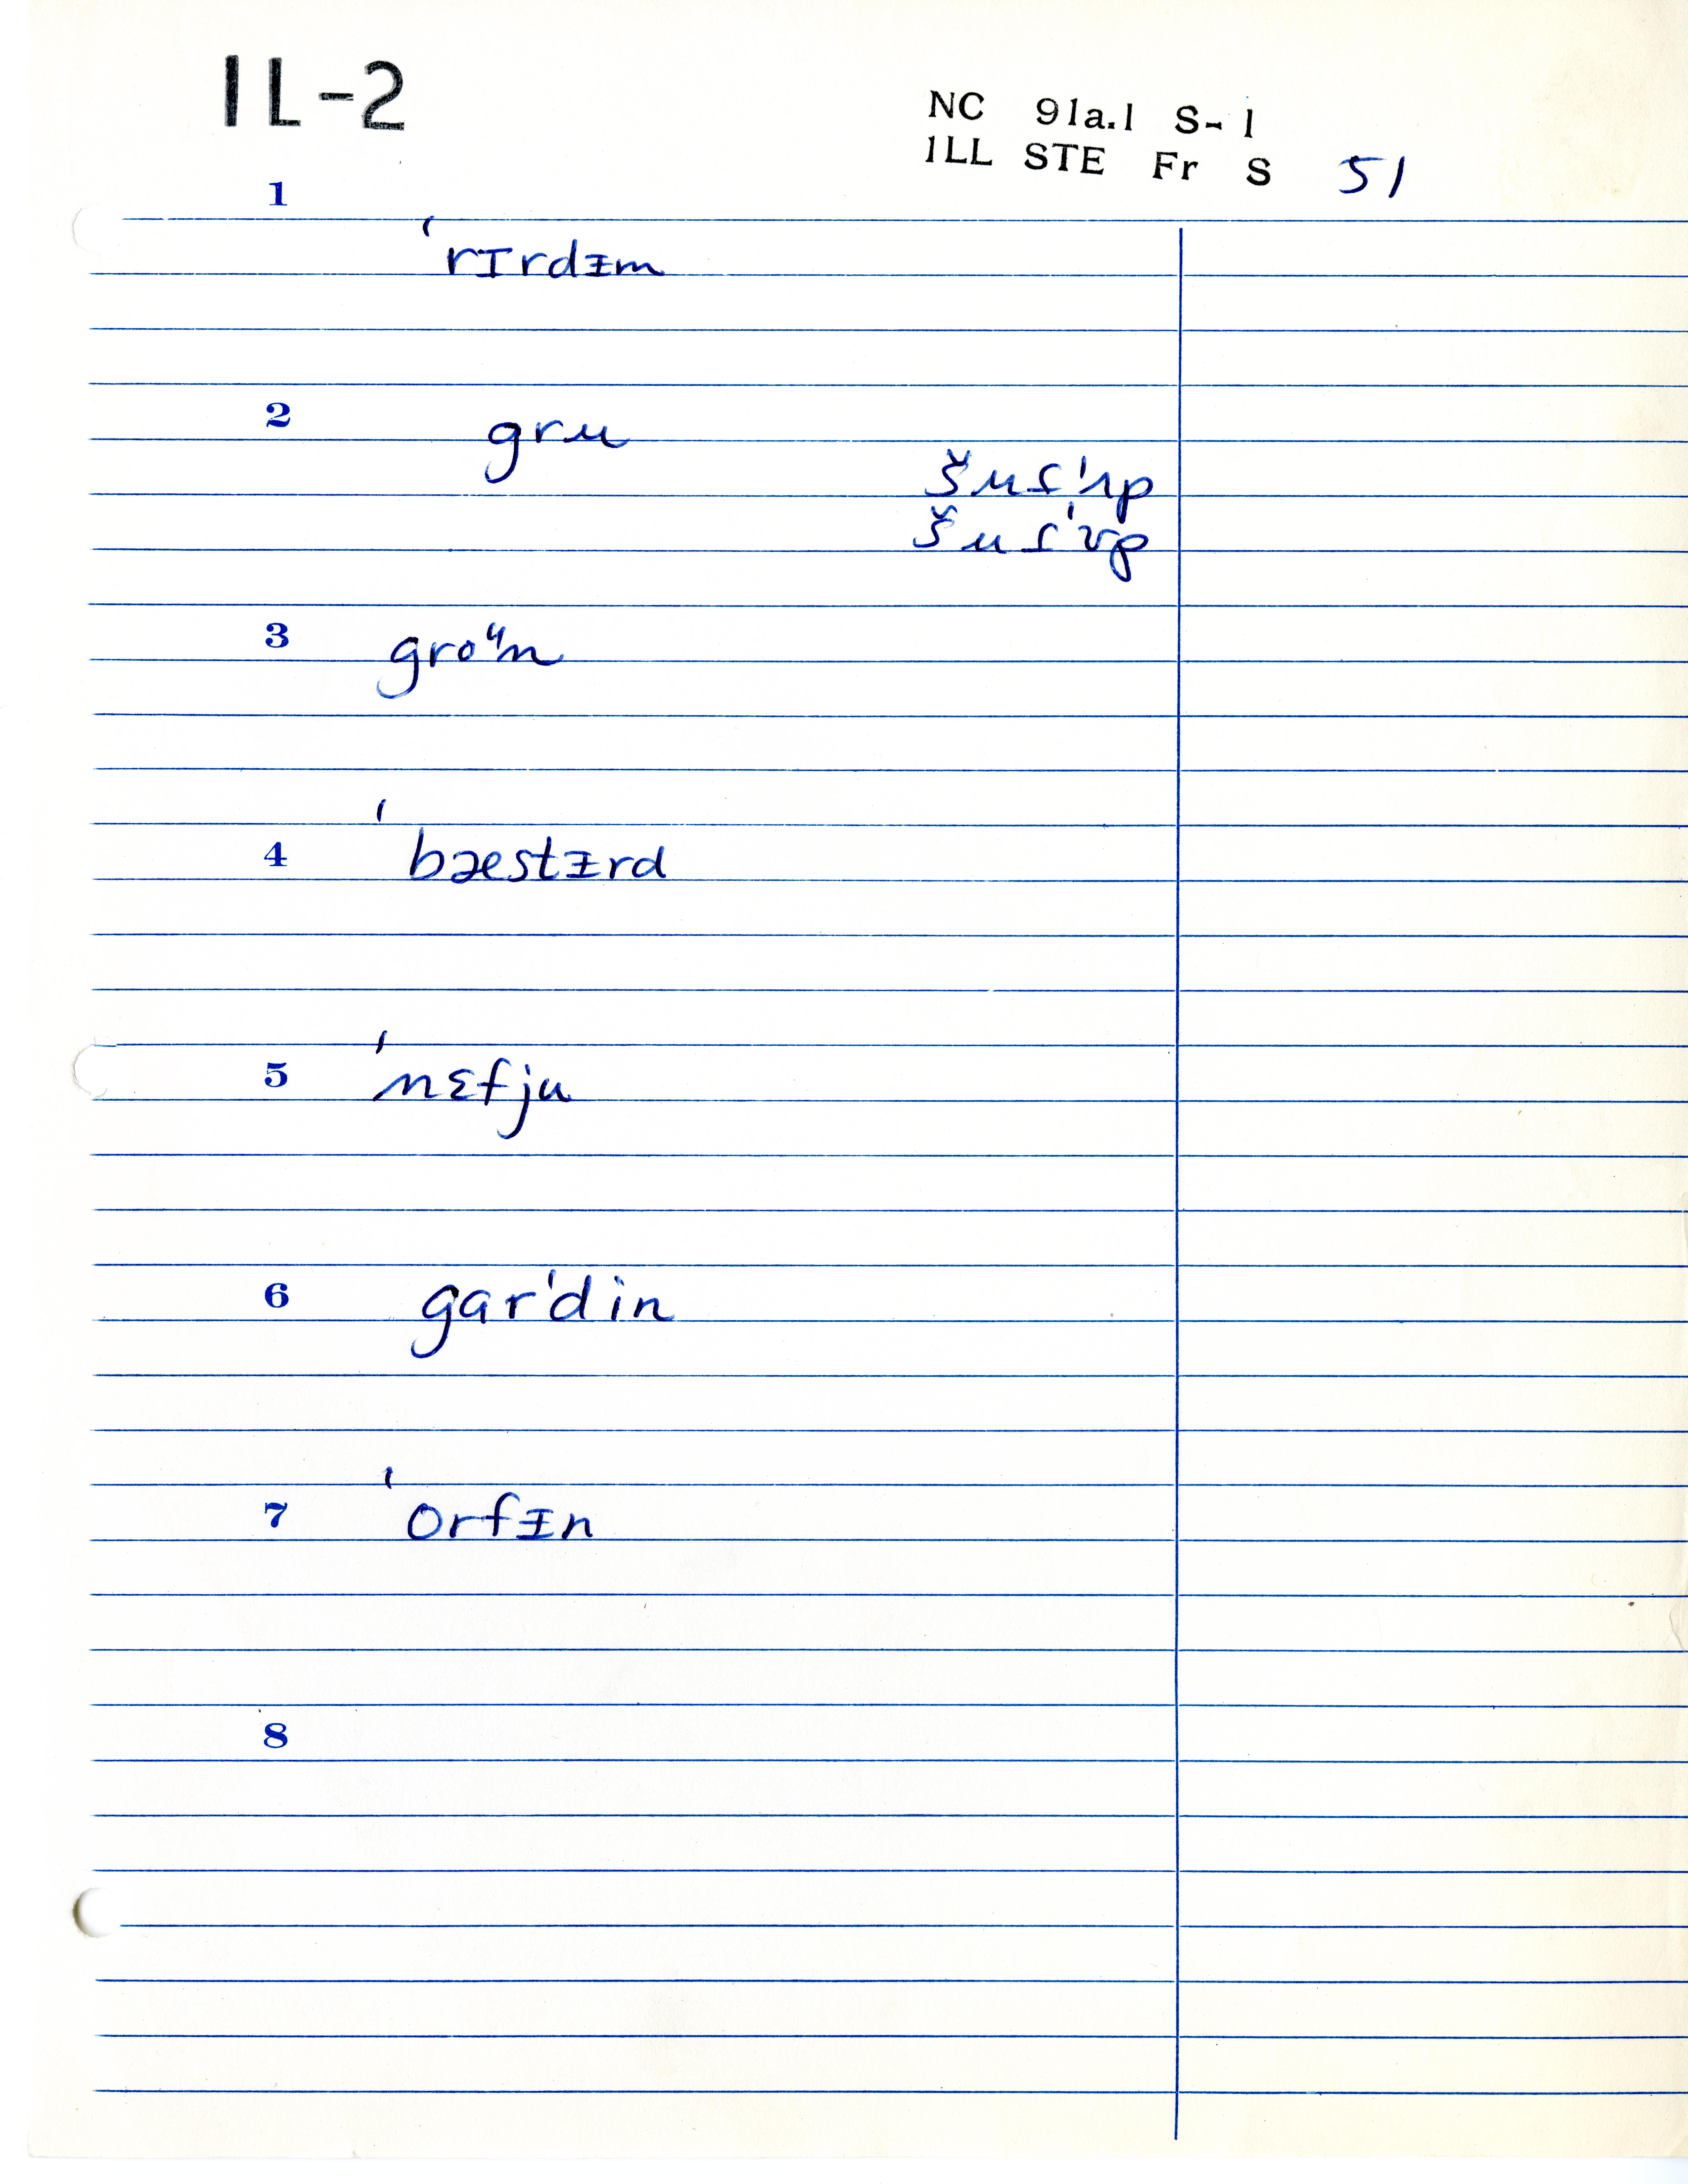 IL-2
NC 91a.1 S-1
ILL STE Fr S 51
1
ˈrɪrdᵻm
2 gru
šuɾˈʌp
šuɾˈɤp
3 groᶣn
4 ˈbæstᵻrd
5 ˈnɛfju
6 garˈdin
7 ˈɔrfᵻn
8